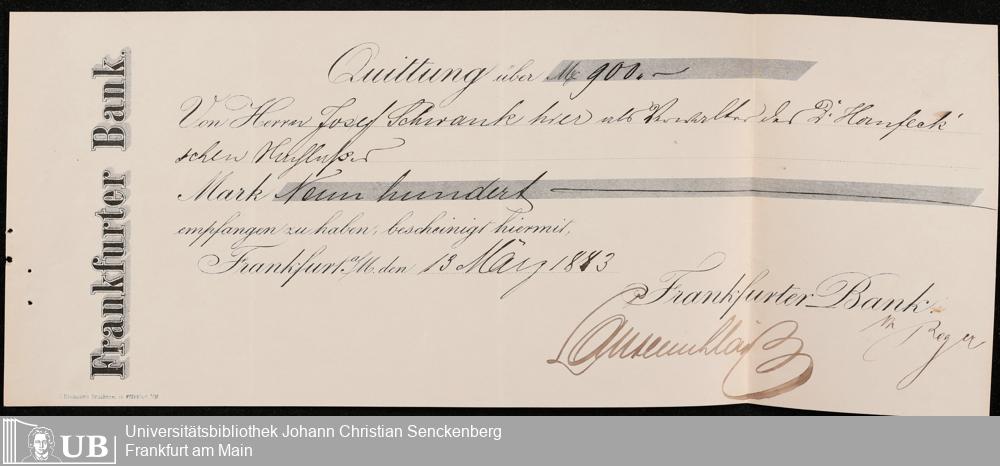 Frankfurter Bank.
Quittung über M. 900.-
Von Herrn Josef Schwank hier als Verwalter des Dr. Hanfeck'
schen Nachlaßes
Mark Neun hundert
empfangen zu haben, bescheinigt hiermit,
Frankfurt a/M. den 13 März 1883
Frankfurter Bank.
UB
Universitätsbibliothek Johann Christian Senckenberg
Frankfurt am Main